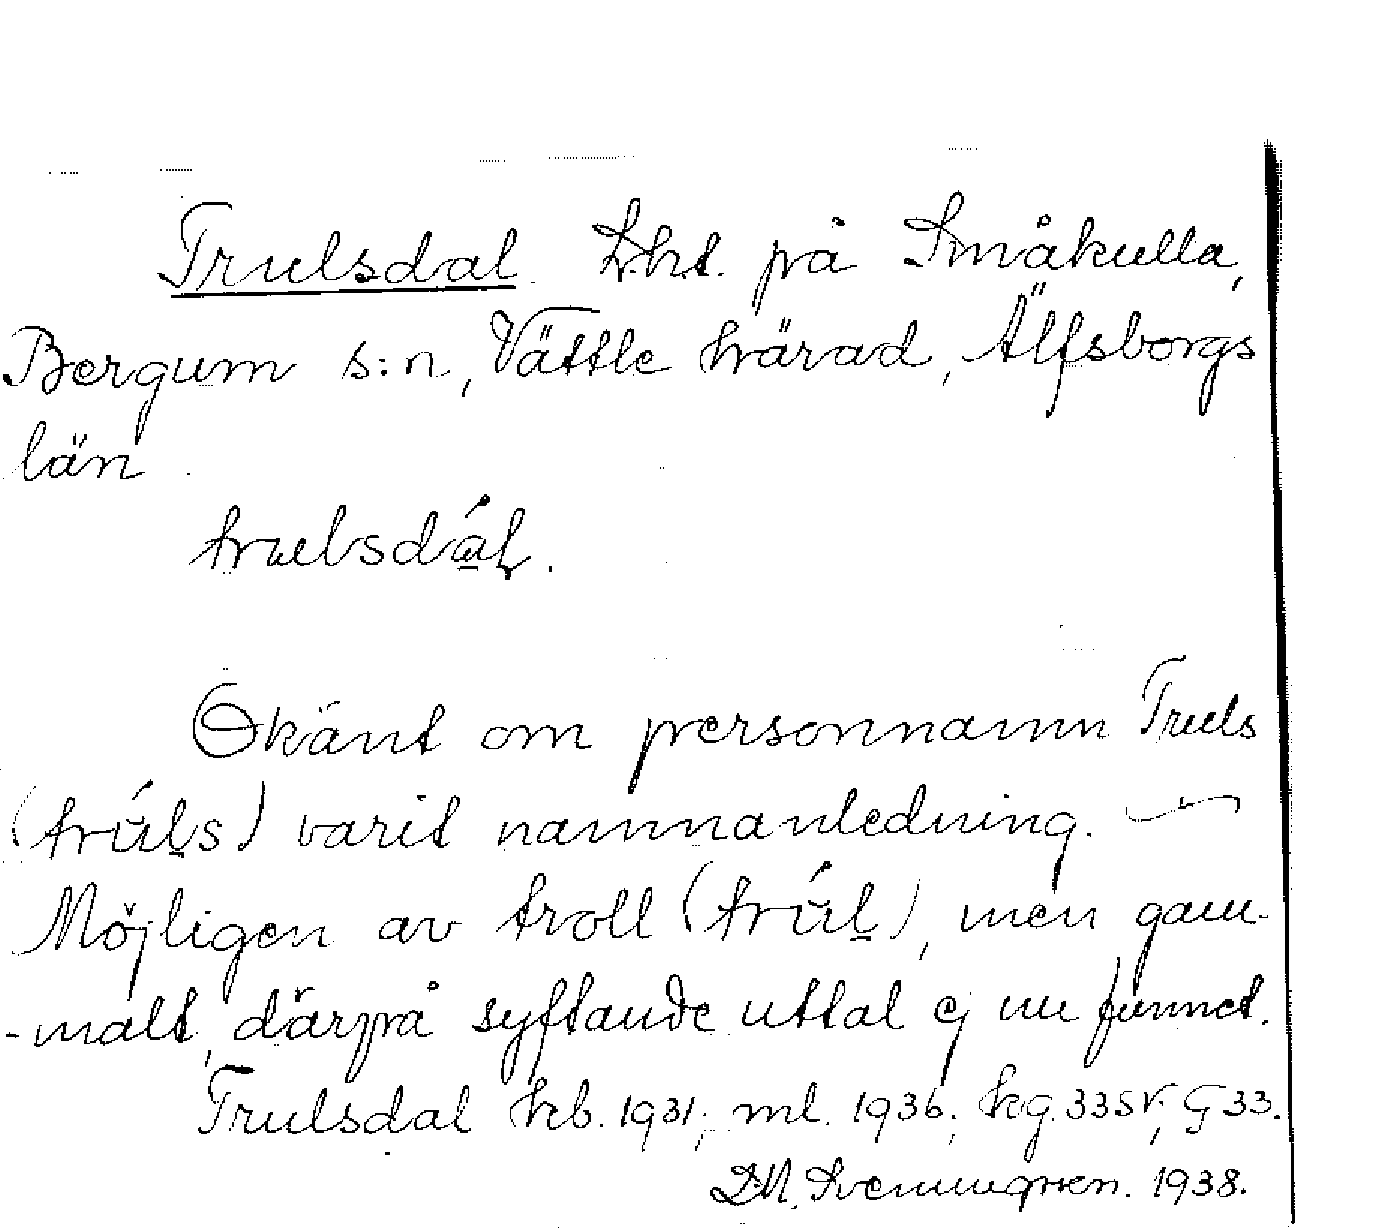 Trulsdal Lht. på Småkulla,
Bergum s:n, Vättle härad, Älfsborgs
län.
trulsdál.
Okänt om personnamn Truls
(trúls) varit namnanledning.
Möjligen av troll (trúl), men gam-
-malt, därpå syftande uttal ej nu funnet.
Trulsdal hrb. 1931; ml. 1936; kg. 33 SV, G 33.
1938.